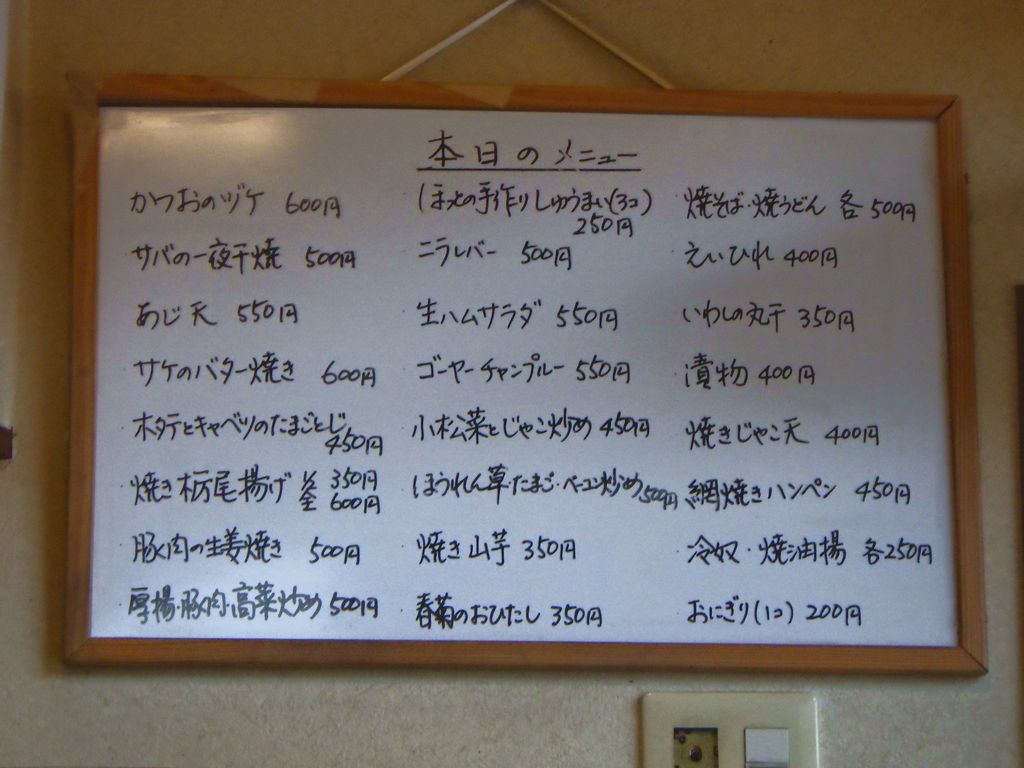 本日のメニュー
かつおのヅケ 600円
サバの一夜干焼 500円
あじ天 550円
サケのバター焼き 600円
ホタテとキャベツのたまごとじ
450円
焼き栃尾揚げ ½ 350円
全 600円
豚肉の生姜焼き 500円
厚揚・豚肉・高菜炒め 500円
ほっとの手作りしゅうまい(3コ)
250円
ニラレバー 500円
生ハムサラダ 550円
ゴーヤーチャンプルー 550円
小松菜とじゃこ炒め 450円
ほうれん草・たまご・ベーコン炒め 500円
焼き山芋 350円
春菊のおひたし 350円
焼そば・焼うどん 各500円
えいひれ 400円
いわしの丸干 350円
漬物 400円
焼きじゃこ天 400円
網焼きハンペン 450円
冷奴・焼油揚 各250円
おにぎり(1コ) 200円